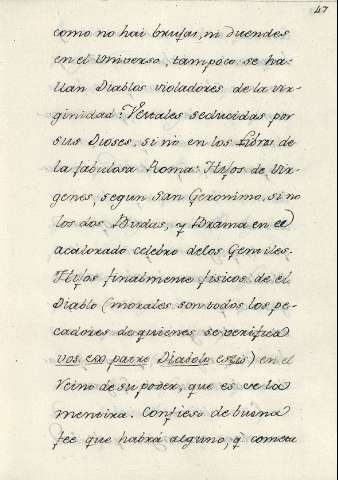 47
como no hai brujas, ni duendes
en el Universo, tampoco se ha-
llan Diablos violadores de la vir-
ginidad: Vestales seducidas por
sus Dioses, si no en los Libros de
la fabulosa Roma: Hijos de Vir-
genes, segun San Geronimo, si no
los dos Budas, y Brama en el
acalorado celebro delos Gentiles.
Hijos finalmente fisicos de el
Diablo (morales son todos los pe-
cadores de quienes se verifica
vos ex patre Diabolo estis) en el
Reino de su poder, que es de la
mentira. Confieso de buena
fee que habrá alguno, q̃ cometa